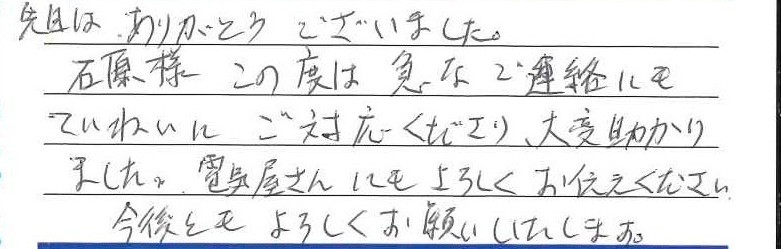 先日は、ありがとうございました。
石原様 この度は急なご連絡にも
ていねいにご対応くださり、大変助かり
ました。電気屋さんにもよろしくお伝えください
今後ともよろしくお願いいたします。